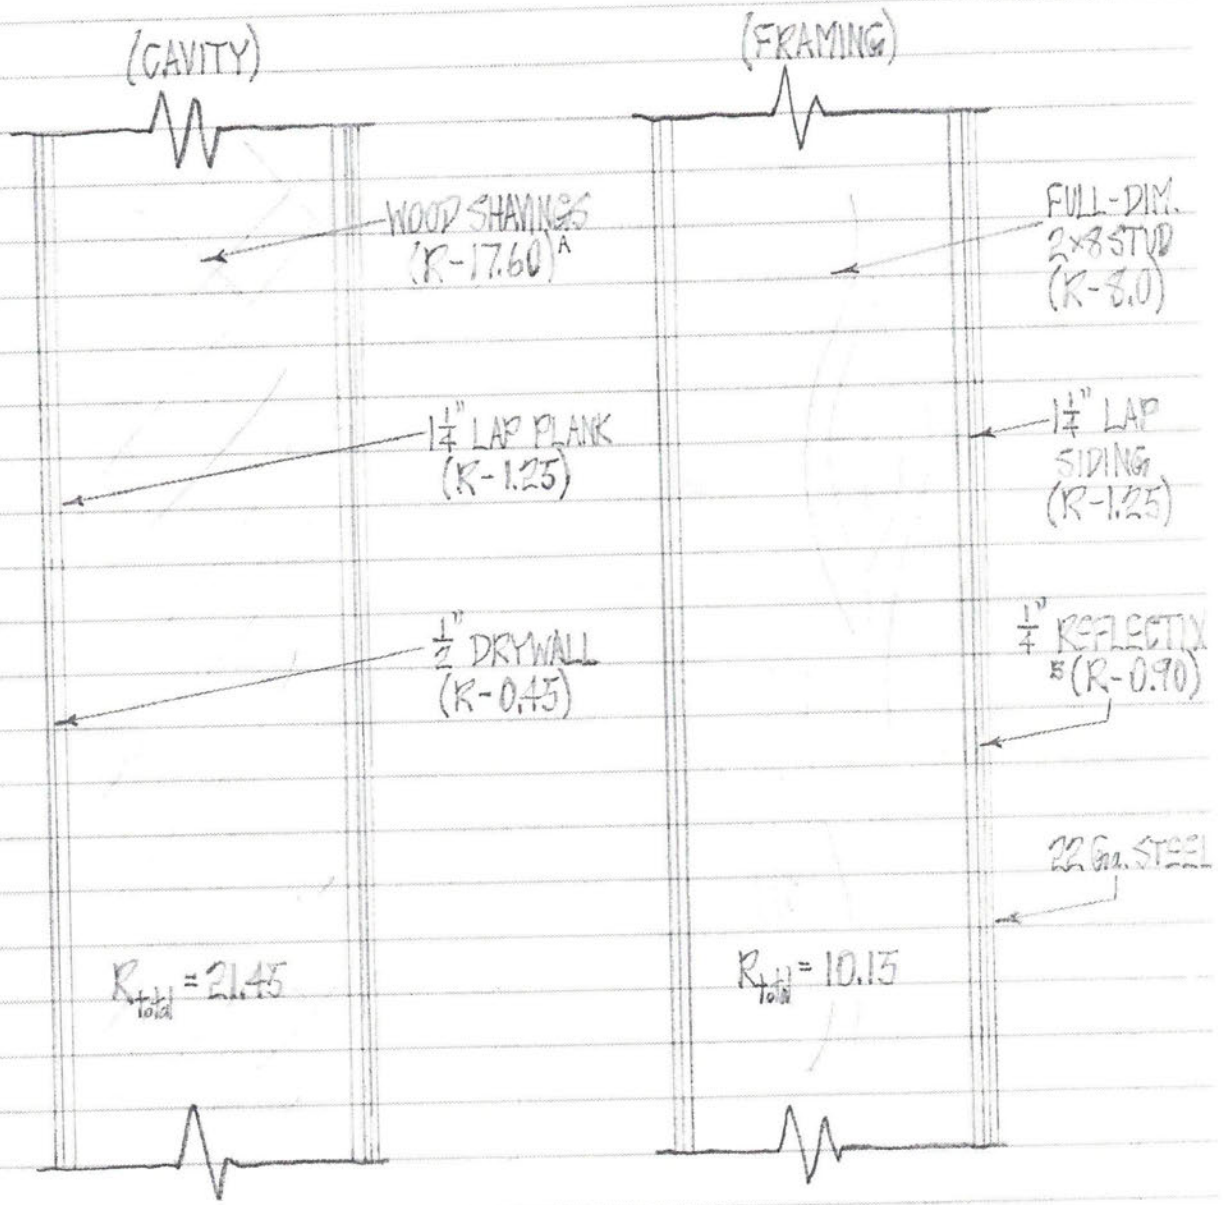 (CAVITY)
WOOD SHAVINGS
(R-17.60)ᴬ
1 1/4" LAP PLANK
(R-1.25)
1/2" DRYWALL
(R-0.45)
Rtotal = 21.45
(FRAMING)
FULL-DIM.
2x8 STUD
(R-8.0)
1 1/4" LAP
SIDING
(R-1.25)
1/4" REFLECTIX
(R-0.90)
22 Ga. STEEL
Rtotal = 10.15